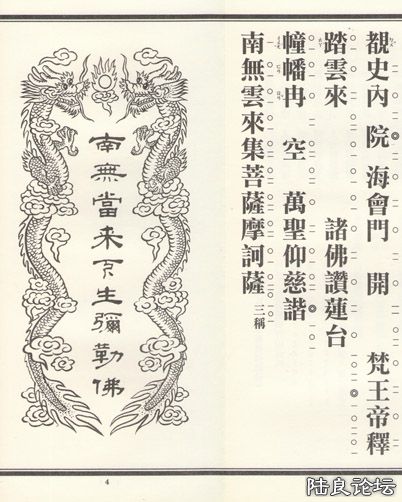 覩史內院海會門開 梵王帝釋
踏雲來 諸佛讚蓮台
幢幡冉空 萬聖仰慈諧
南無雲來集菩薩摩訶薩 三稱
南無當來下生彌勒佛
4
陆良论坛